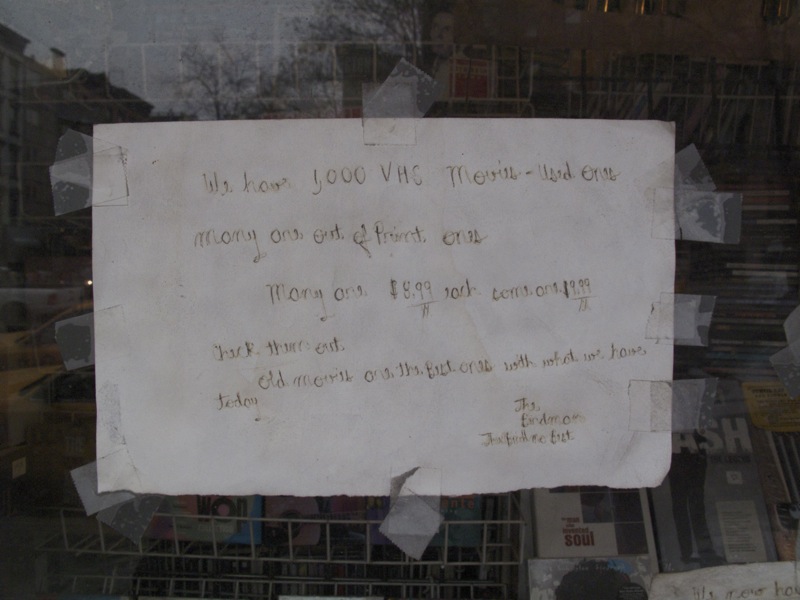 We have 1,000 VHS Movies - Used ones
many are out of Print ones
Many are $5.99 each some are $9.99
Check them out
Old movies are the Best ones with what we have
today
The
Birdman
ASH
the man
who
invented
soul
We now have